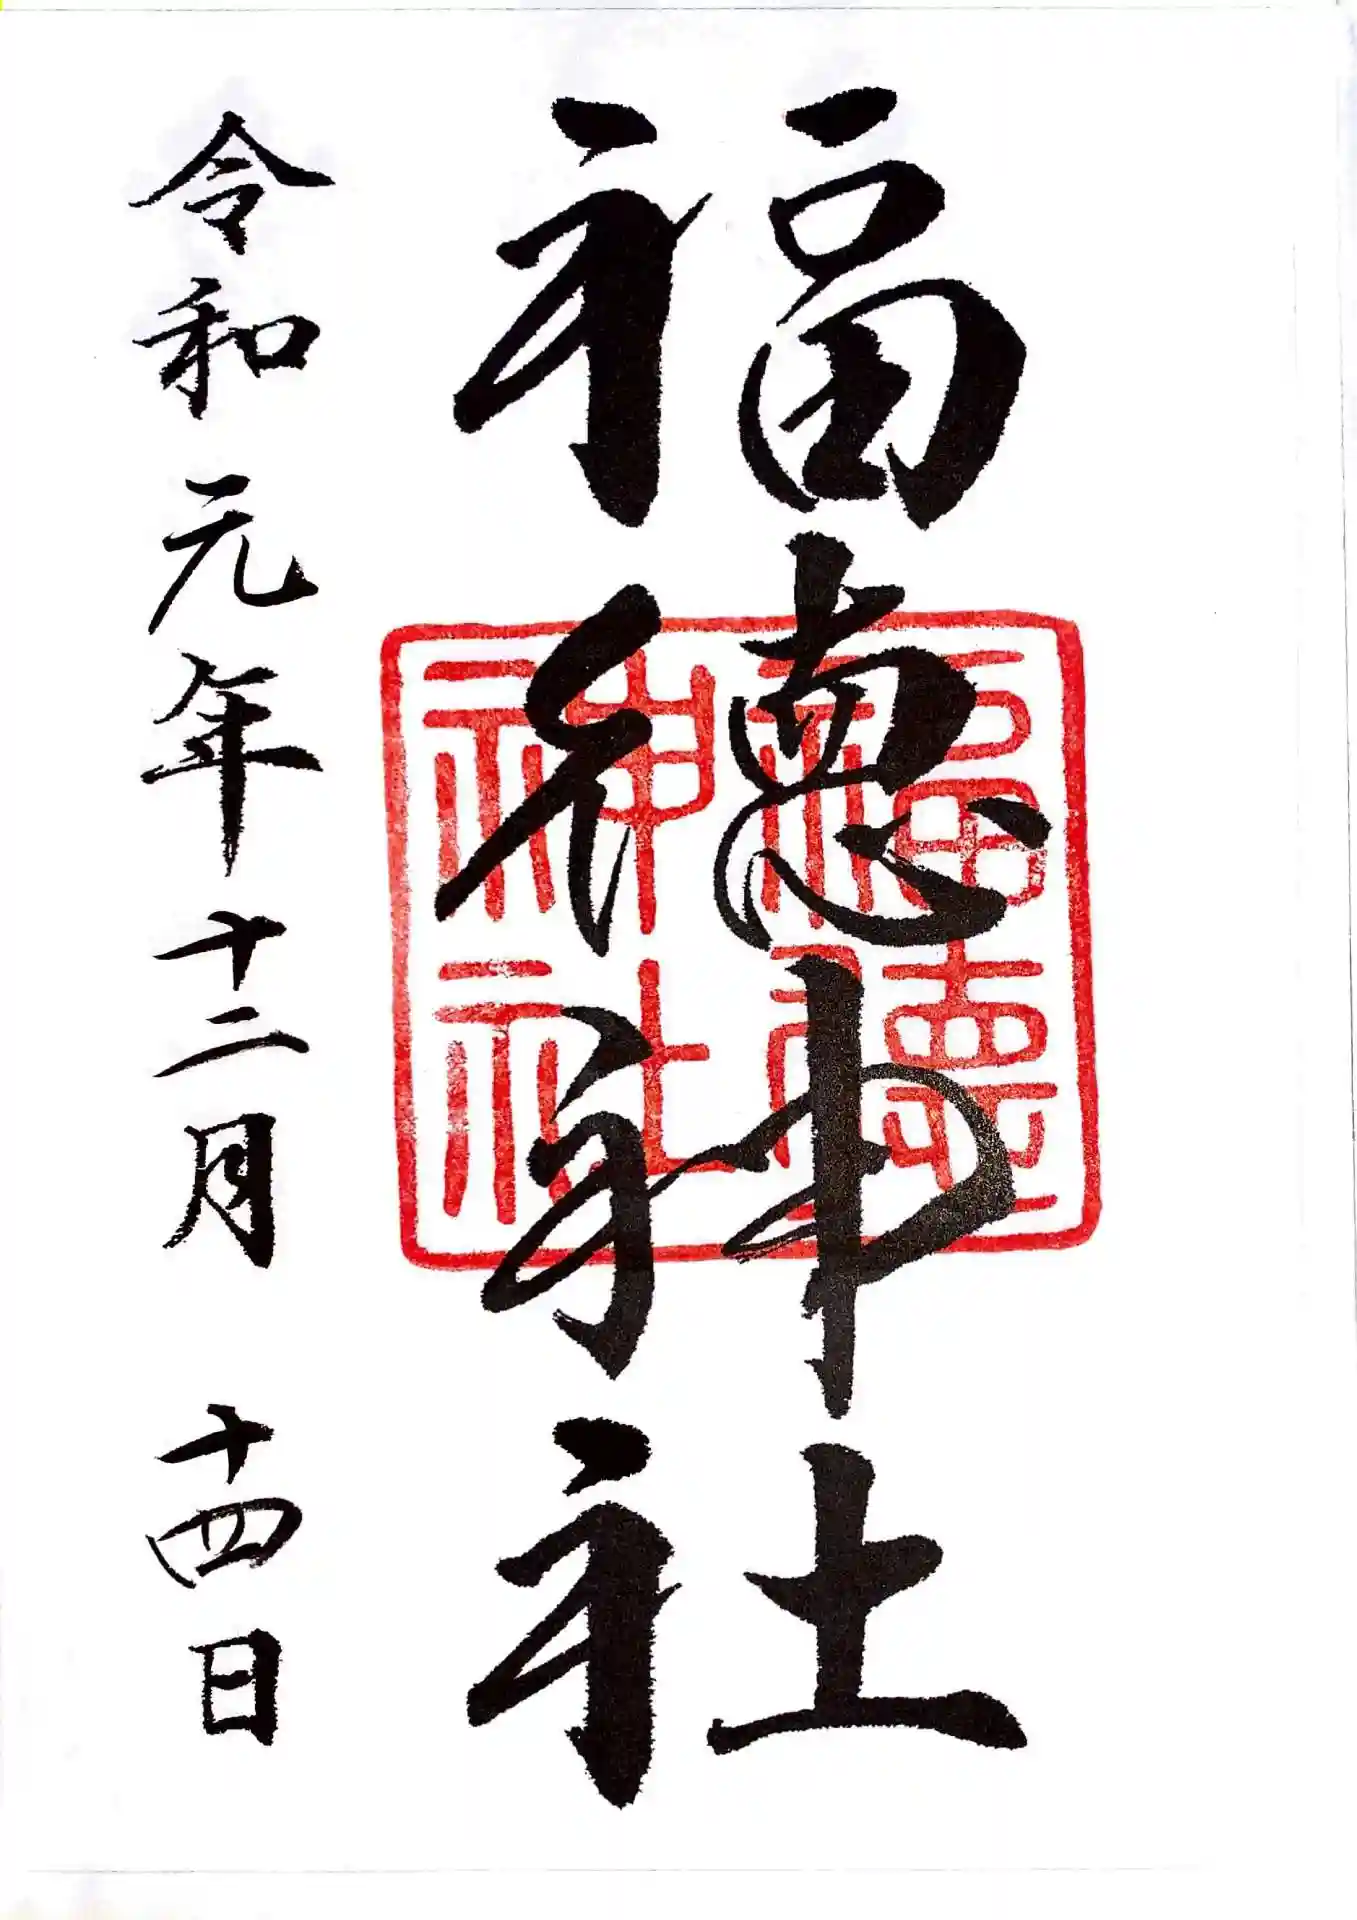 福徳神社
福德神社
令和元年十二月十四日